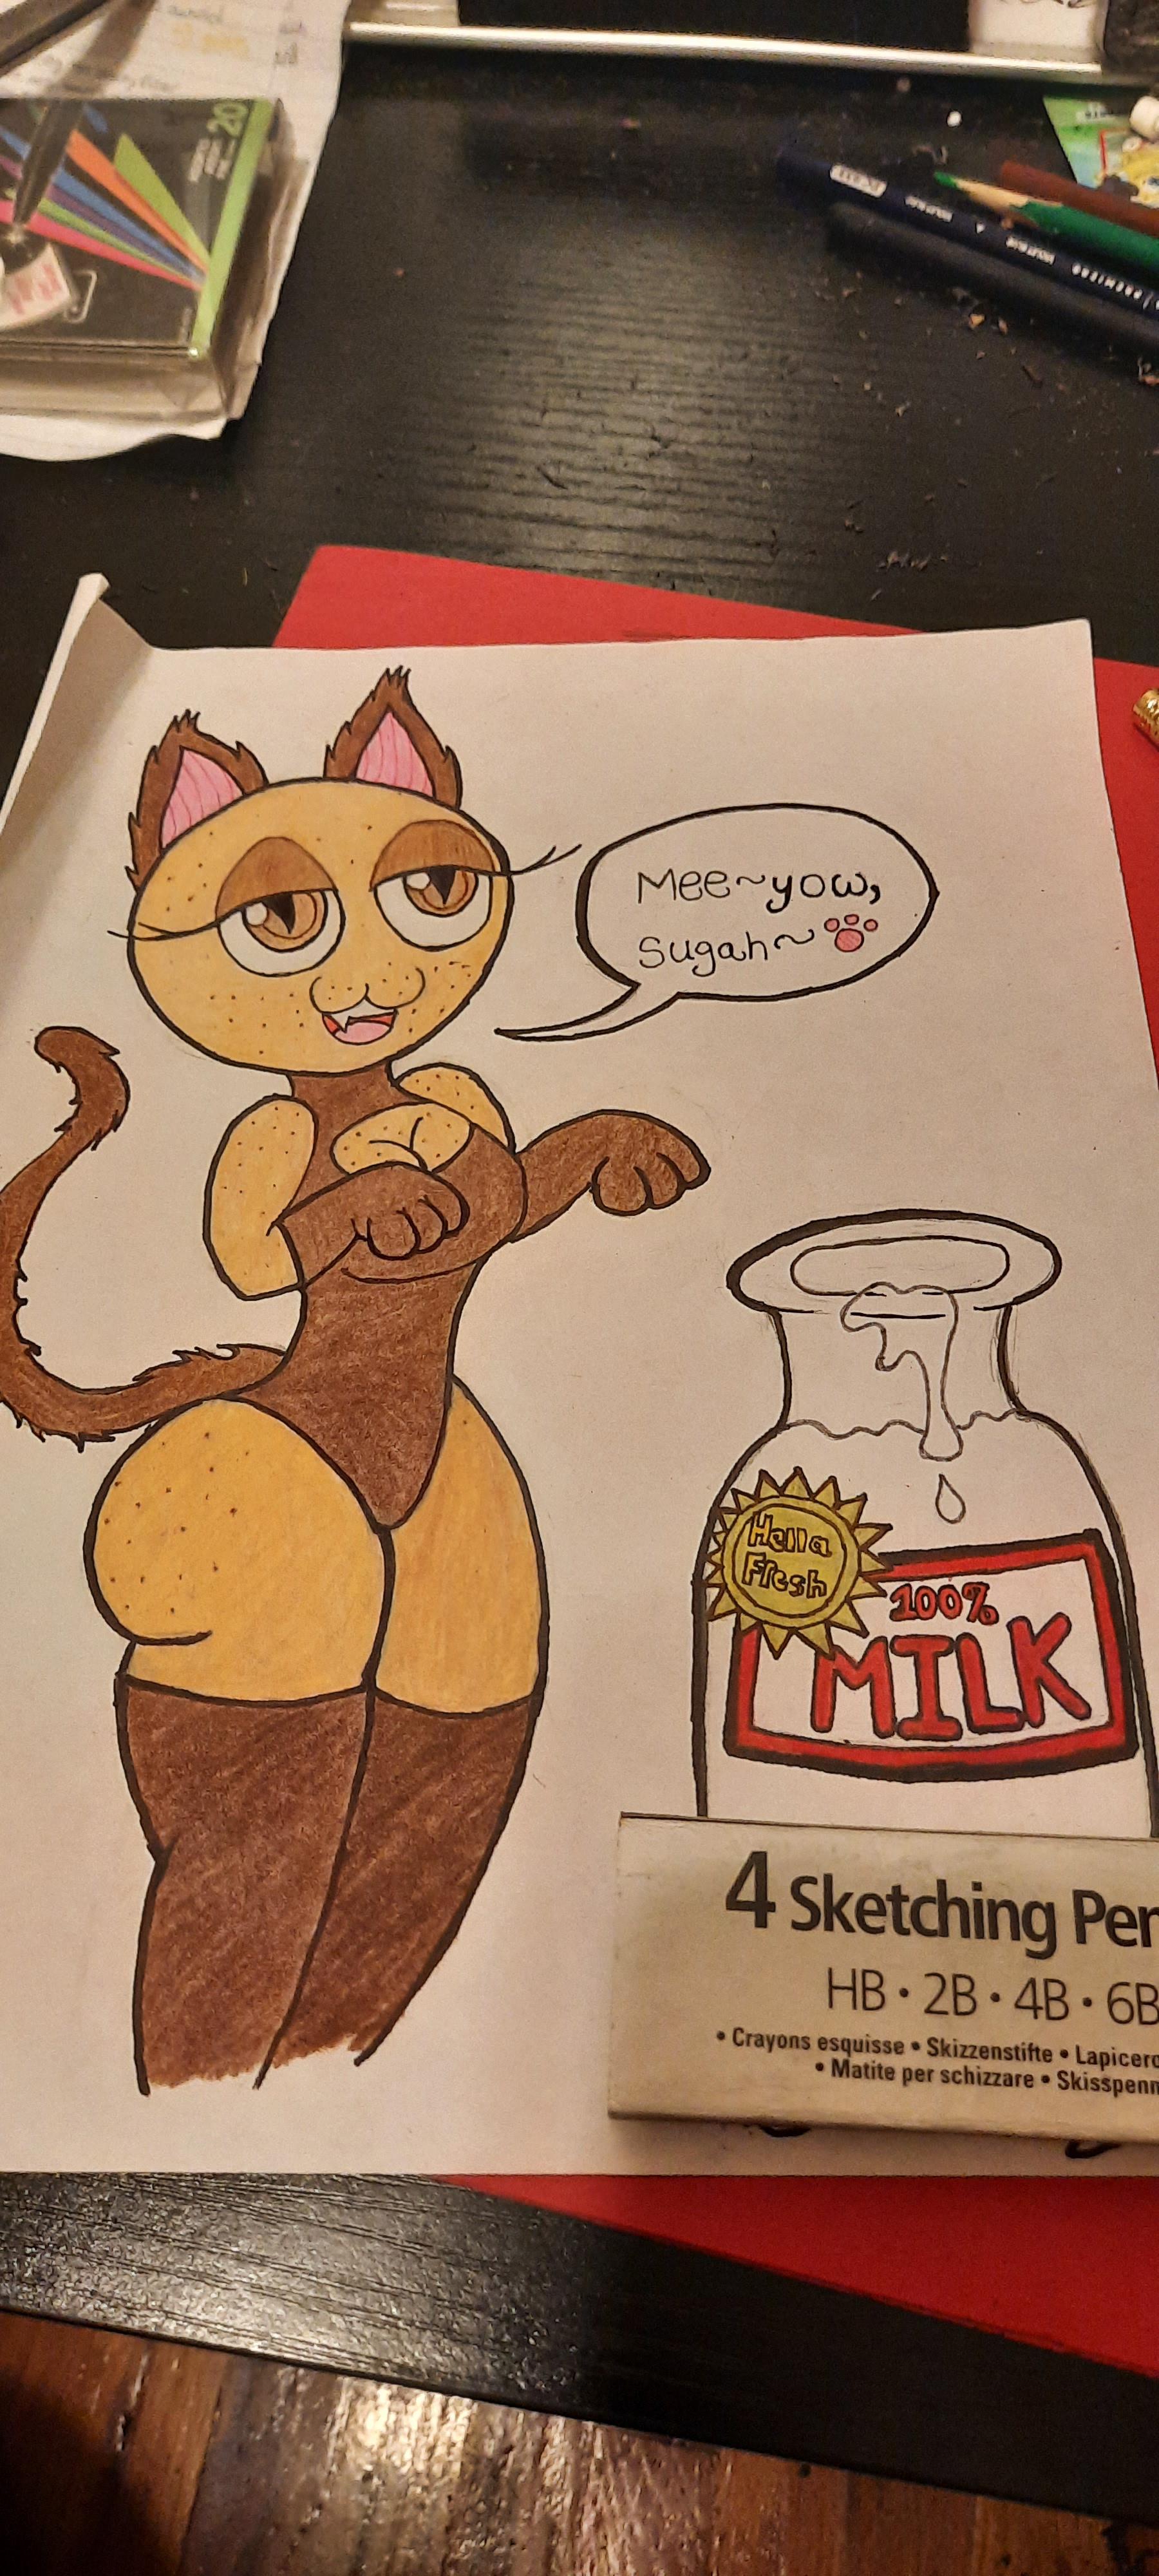 20
Mee~yow,
Sugah~
Hella
Fresh
100%
MILK
4 Sketching Pen
HB • 2B • 4B • 6B
• Crayons esquisse • Skizzenstifte •
• Matite per schizzare •